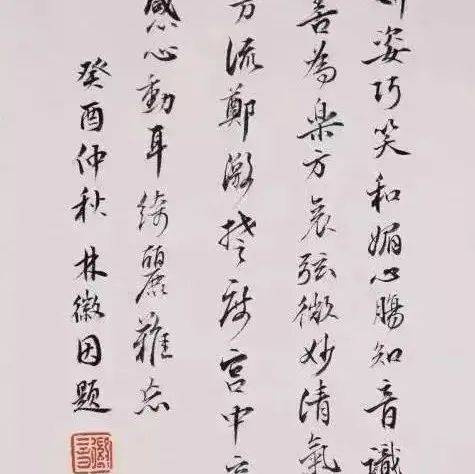 姿巧笑和媚心腸知音識
善為楽方哀弦微妙清氣
流鄭激楚度宮中
感心動耳綺麗難忘
癸酉仲秋 林徽因題